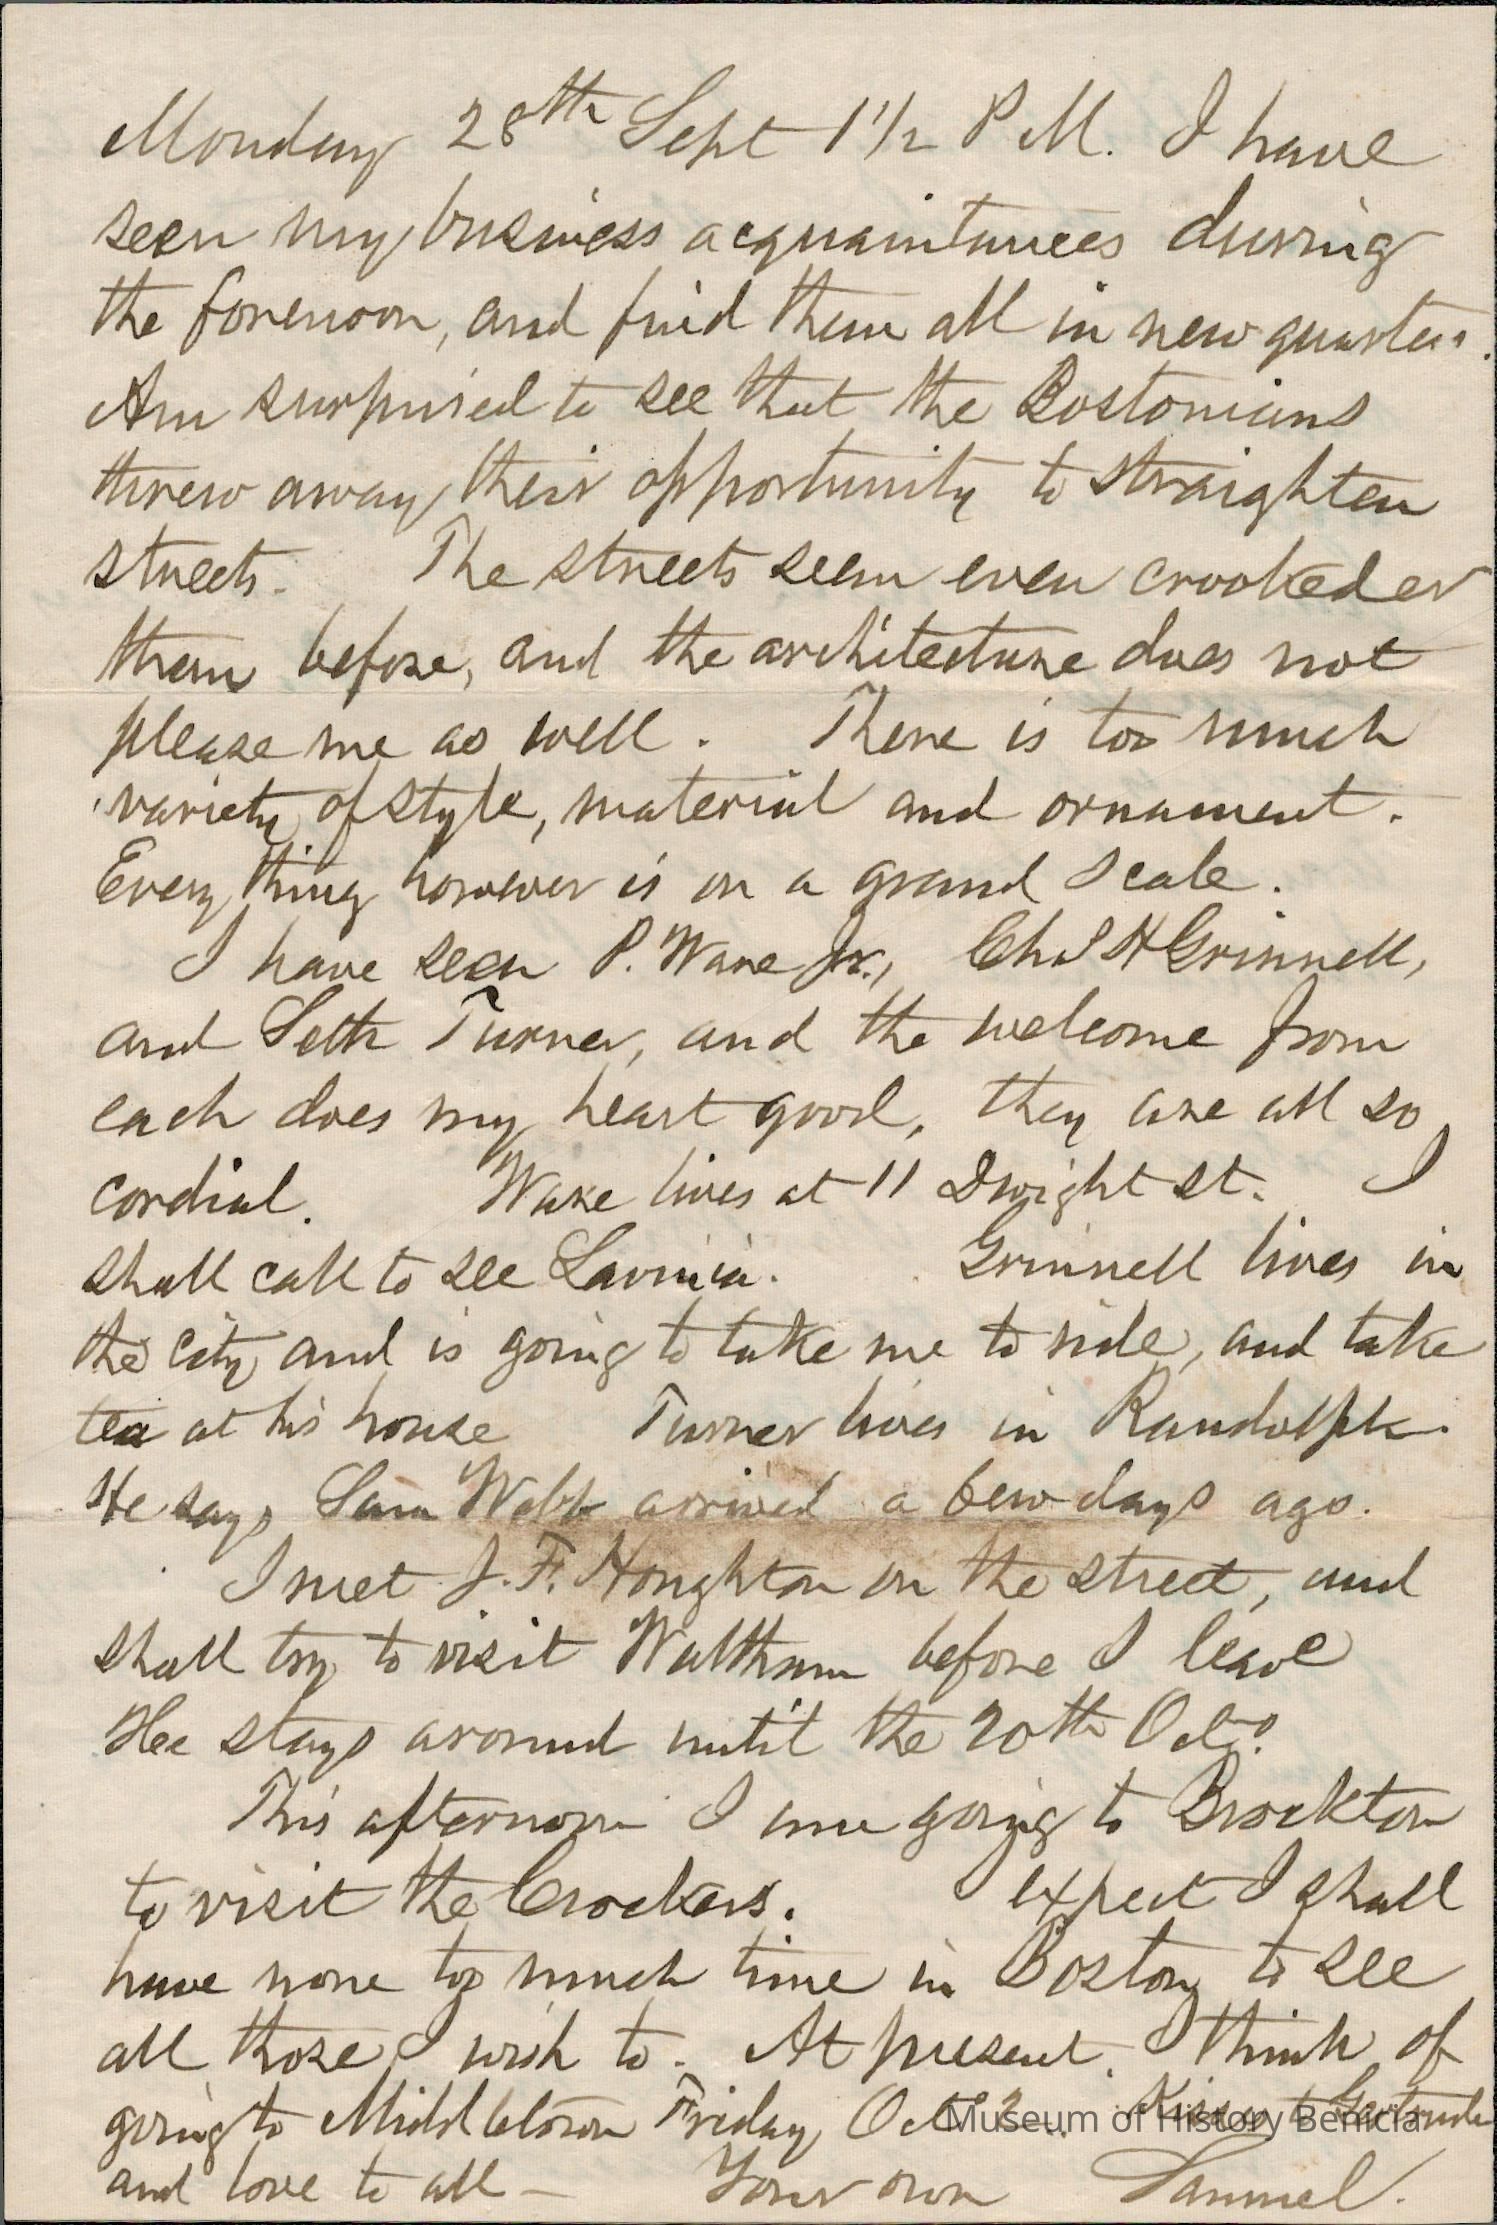 Monday 28th Sept 1 1/2 P M. I have
seen my business acquaintances during
the forenoon, and find them all in new quarters.
Am surprised to see that the Bostonians
threw away their opportunity to straighten
streets. The streets seem even crookeder
than before, and the architecture does not
please me as well. There is too much
variety of style, material and ornament.
Every thing however is on a grand scale.
I have seen P. Ware Jr., Chs H Grinnell,
and Seth Turner, and the welcome from
each does my heart good, they are all so
cordial. Ware lives at 11 Dwight St. I
shall call to see Lavinia. Grinnell lives in
the city and is going to take me to ride, and take
tea at his house Turner lives in Randolph.
He says Sam Webb arrived a few days ago.
I met J. F. Houghton on the street, and
shall try to visit Waltham before I leave
He stays around until the 20th Oct.
This afternoon I am going to Brockton
to visit the Crockers. I expect I shall
have none too much time in Boston to see
all those I wish to. At present I think of
going to Middletown Friday Oct 2. Kisses to Gertrude
and love to all — Your own Samuel.
Museum of History Benicia